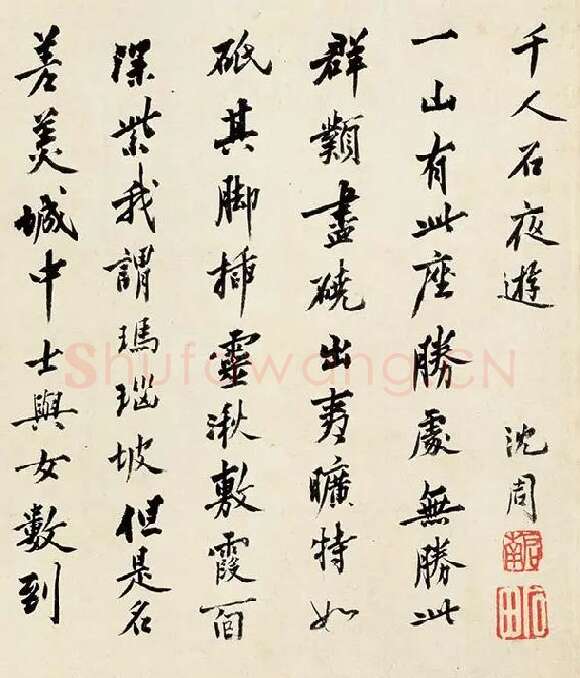 千人石夜遊
沈周
啟南
石田
一山有此座勝處無勝此
群類盡磽出夷曠特如
砥其脚插靈湫敷霞面
深紫我謂瑪瑙坡但是名
差美城中士與女數到
Shufawang.CN